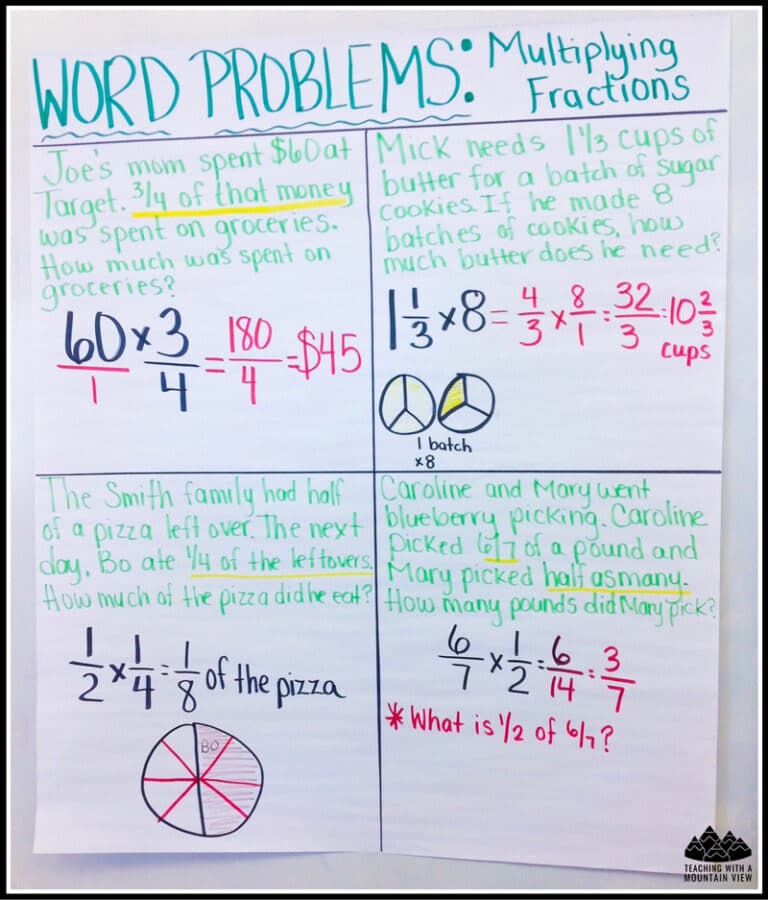 WORD PROBLEMS: Multiplying
Fractions
Joe's mom spent $60 at
Target. 3/4 of that money
was spent on groceries.
How much was spent on
groceries?
60/1 x 3/4 = 180/4 = $45
Mick needs 1 1/3 cups of
butter for a batch of sugar
cookies. If he made 8
batches of cookies, how
much butter does he need?
1 1/3 x 8 = 4/3 x 8/1 = 32/3 = 10 2/3
cups
1 batch
x8
The Smith family had half
of a pizza left over. The next
day, Bo ate 1/4 of the leftovers.
How much of the pizza did he eat?
1/2 x 1/4 = 1/8 of the pizza
BO
Caroline and Mary went
blueberry picking. Caroline
picked 6/7 of a pound and
Mary picked half as many.
How many pounds did Mary pick?
6/7 x 1/2 = 6/14 = 3/7
* What is 1/2 of 6/7?
TEACHING WITH A
MOUNTAIN VIEW